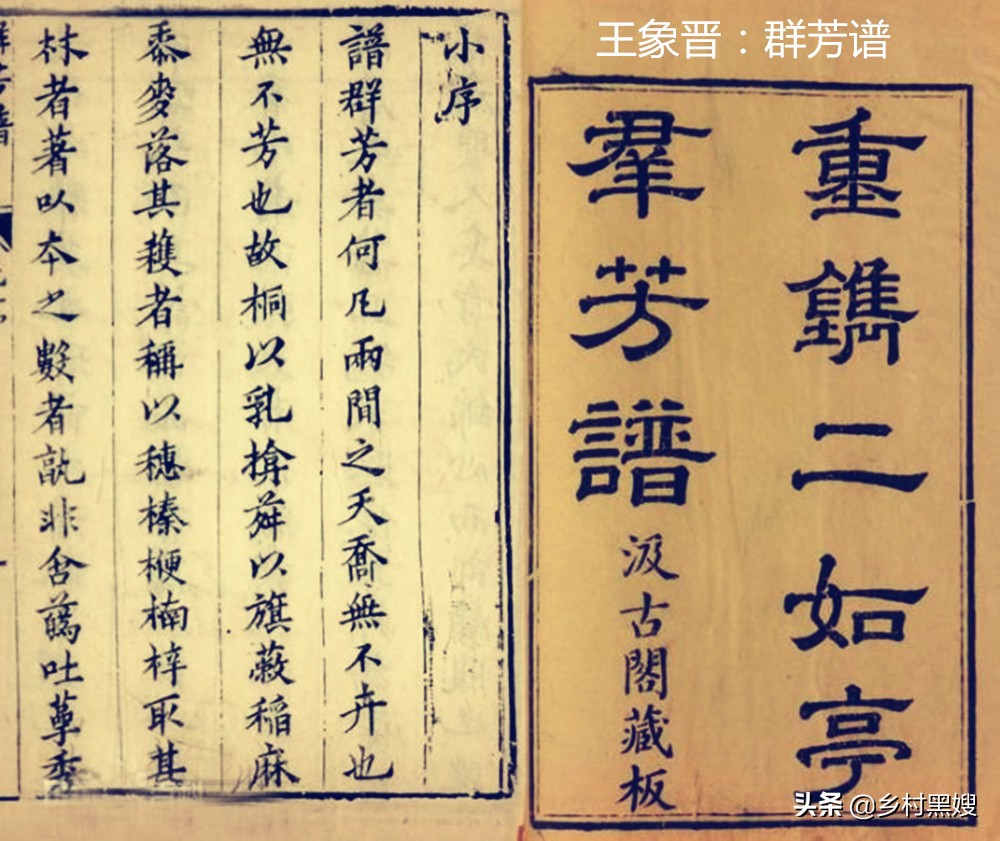 王象晋：群芳谱
重鐫二如亭
羣芳譜
汲古閣藏板
小序
譜群芳者何凡兩間之天喬無不卉也
無不芳也故桐以乳以旗蔌稲麻
黍麥落其穫者稱以穗榛楩楠梓取其
林者著以本之數者孰非含吐秀
头条 @乡村黑嫂